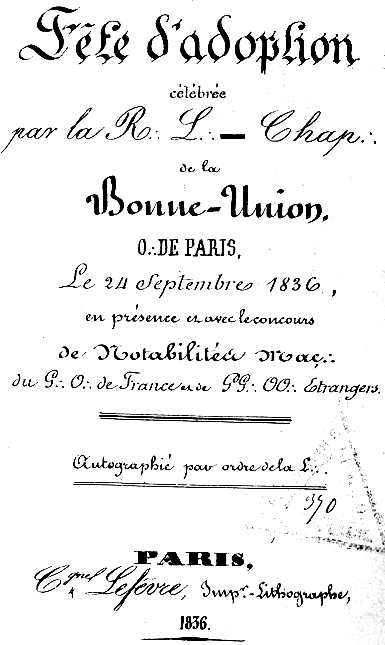 Fête d'adoption
célébrée
par la R∴ L∴ — Chap∴
de la
Bonne-Union,
O∴ DE PARIS,
Le 24 Septembre 1836,
en présence et avec le concours
de Notabilités Maç∴
du G∴ O∴ de France et de GG∴ OO∴ Etrangers.
Autographié par ordre de la L∴
390
PARIS,
Lefévre, Impr.-Lithographe,
1836.